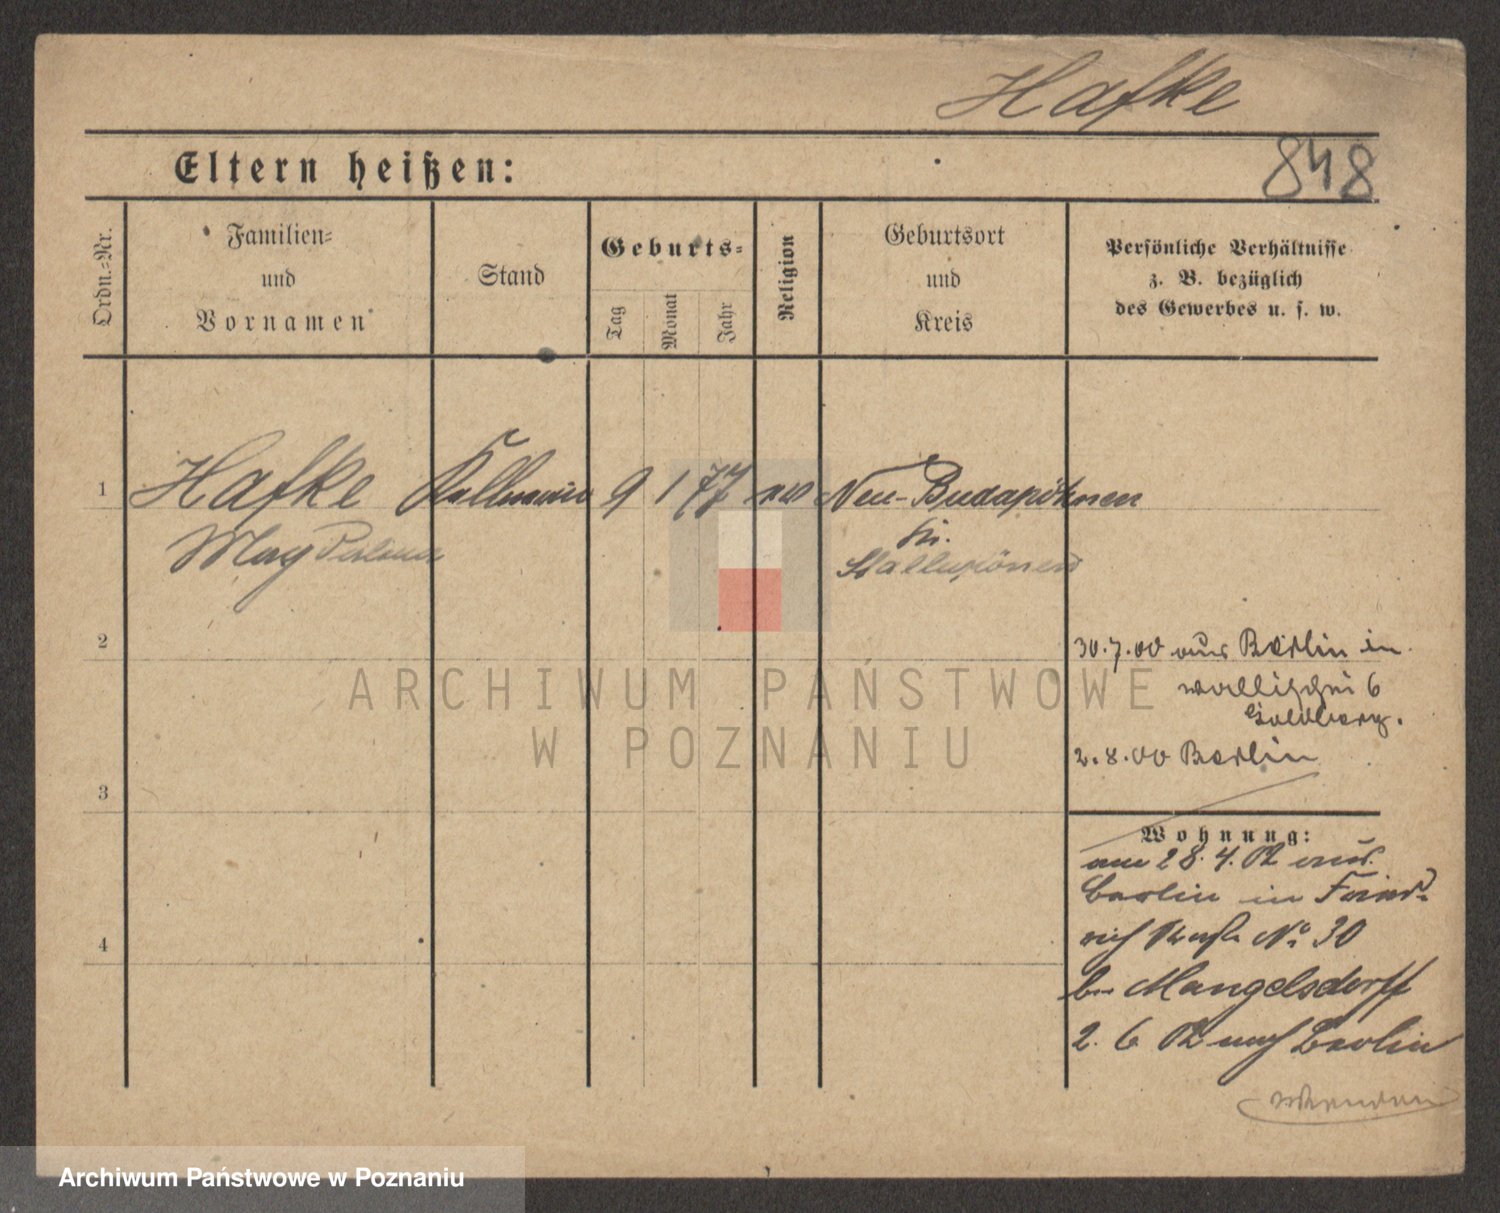 Hafke
848
Eltern heißen:
Ordn.-Nr.
Familien-
und
Vornamen
Stand
Geburts-
Tag
Monat
Jahr
Religion
Geburtsort
und
Kreis
Persönliche Verhältnisse
z. B. bezüglich
des Gewerbes u. s. w.
1
Hafke Kellnerin 9 1 77 ev Neu-Budupönen
Kr.
Mag
Stallupönen
2
30.7.00 aus Berlin in
Wallischei 6
Goldberg.
2.8.00 Berlin
3
Wohnung:
am 28.4.02 aus
Berlin in Fried-
rich Straße No. 30
bei Mangelsdorff
4
2. 6 02 nach Berlin
ARCHIWUM PAŃSTWOWE
W POZNANIU
Archiwum Państwowe w Poznaniu